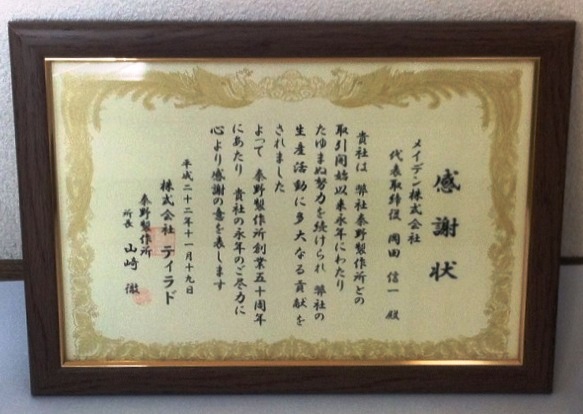 感謝状
メイデン株式会社
代表取締役 岡田 信一 殿
貴社は 弊社秦野製作所との
取引開始以来永年にわたり
たゆまぬ努力を続けられ 弊社の
生産活動に多大なる貢献を
されました
よって 秦野製作所創業五十周年
にあたり 貴社の永年のご尽力に
心より感謝の意を表します
平成二十二年十一月十九日
株式会社 ティラド
秦野製作所
所長 山﨑 徹